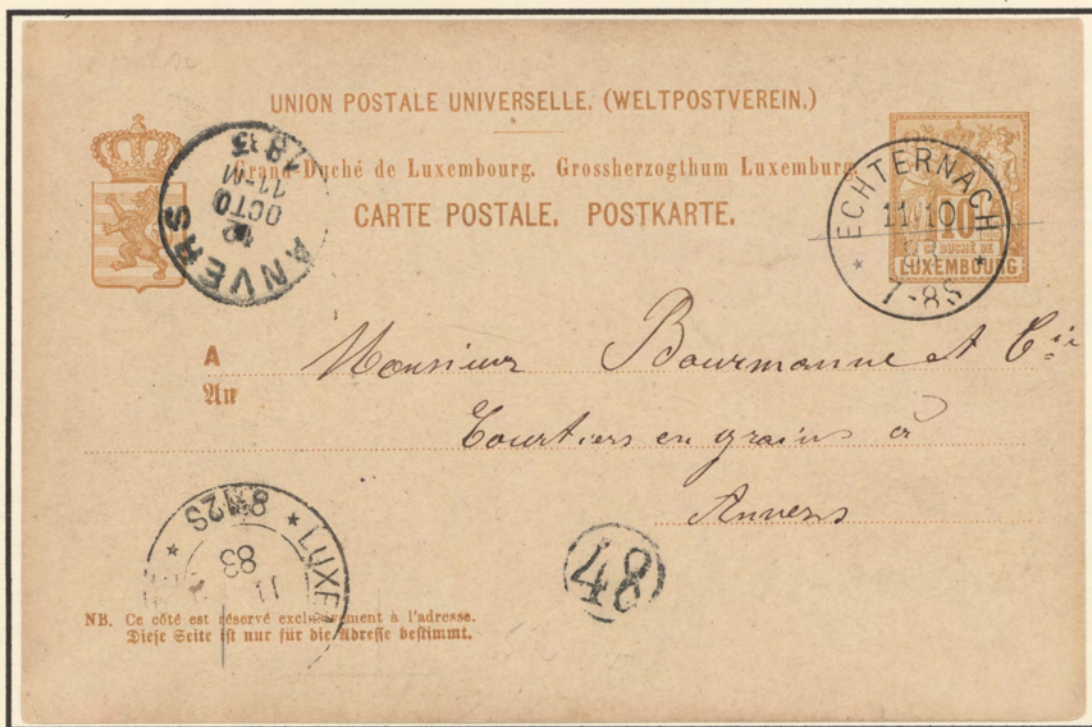 UNION POSTALE UNIVERSELLE. (WELTPOSTVEREIN.)
Grand-Duché de Luxembourg. Grossherzogthum Luxemburg.
CARTE POSTALE. POSTKARTE.
ANVERS
12
OCTO
11-M
1883
ECHTERNACH
11.10
83
7-8S
10
DUCHÉ DE
LUXEMBOURG
A Monsieur Bourmanne et Cie
An
Courtiers en grains à
Anvers
LUXE
8-12S
11
83
48
NB. Ce côté est réservé exclusivement à l'adresse.
Diese Seite ist nur für die Adresse bestimmt.